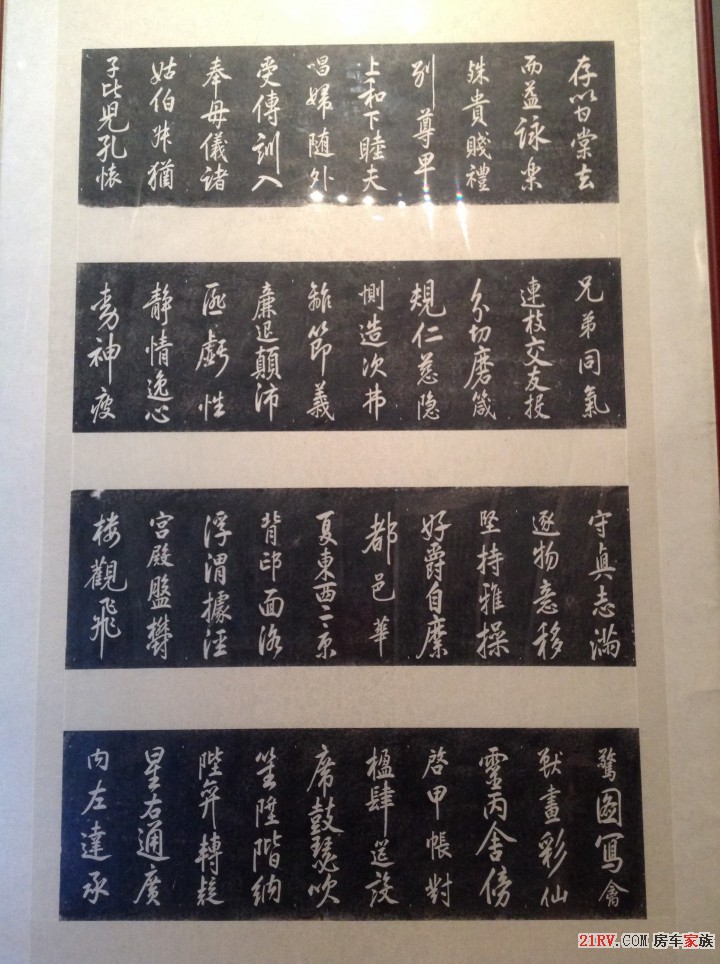 存以甘棠去
而益詠楽
殊貴賤禮
別尊卑
上和下睦夫
唱婦随外
受傅訓入
奉母儀諸
姑伯叔猶
子比兒孔懐
兄弟同氣
連枝交友投
分切磨箴
規仁慈隐
惻造次弗
離節義
廉退顛沛
匪虧性
静情逸心
動神疲
守真志滿
逐物意移
堅持雅操
好爵自縻
都邑華
夏東西二京
背邙面洛
浮渭據涇
宫殿盤欝
楼觀飛
驚圖寫禽
獸畫彩仙
靈丙舍傍
啓甲帳對
楹肆筵設
席鼓瑟吹
笙陞階納
陛弁轉疑
星右通廣
内左達承
21RV.COM 房车家族